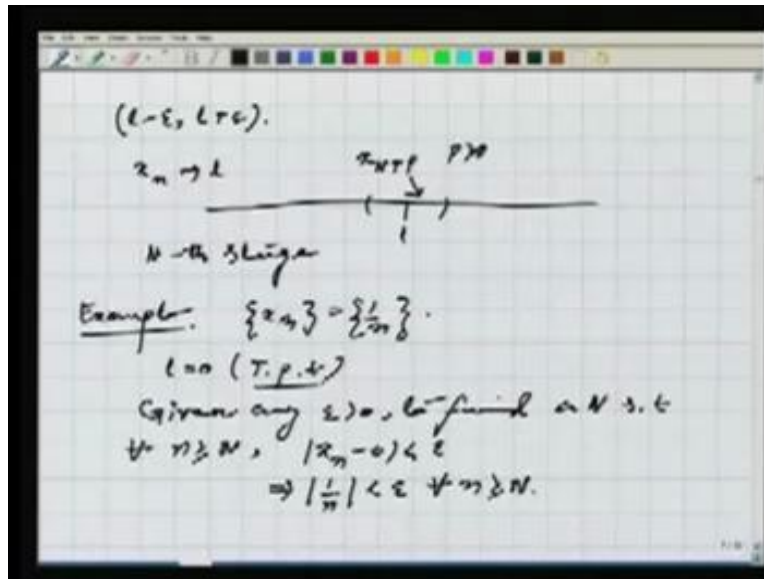 (l-ε, l+ε).
x_n → l
x_{N+p} p≥0
( )
l
N-th stage
Example. {x_n} = {1/n}.
l=0 (T.p.t.)
Given any ε>0, to find a N s.t
∀ n≥N, |x_n-0|<ε
⇒ |1/n| < ε ∀ n≥N.